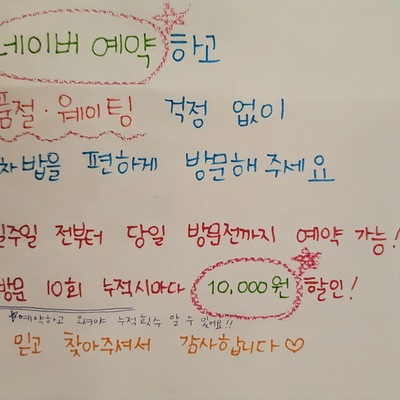 네이버 예약 하고
품절·웨이팅 걱정 없이
차밥을 편하게 방문해주세요
일주일 전부터 당일 방문전까지 예약 가능!
방문 10회 누적시마다 10,000원 할인!
*예약하고 오셔야 누적횟수 알 수 있어요!!
믿고 찾아주셔서 감사합니다♡